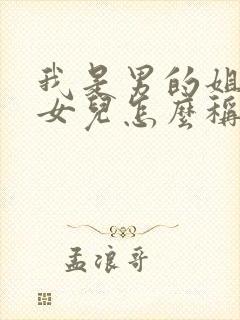 我是男的姐
女兒怎麼稱
孟浪哥